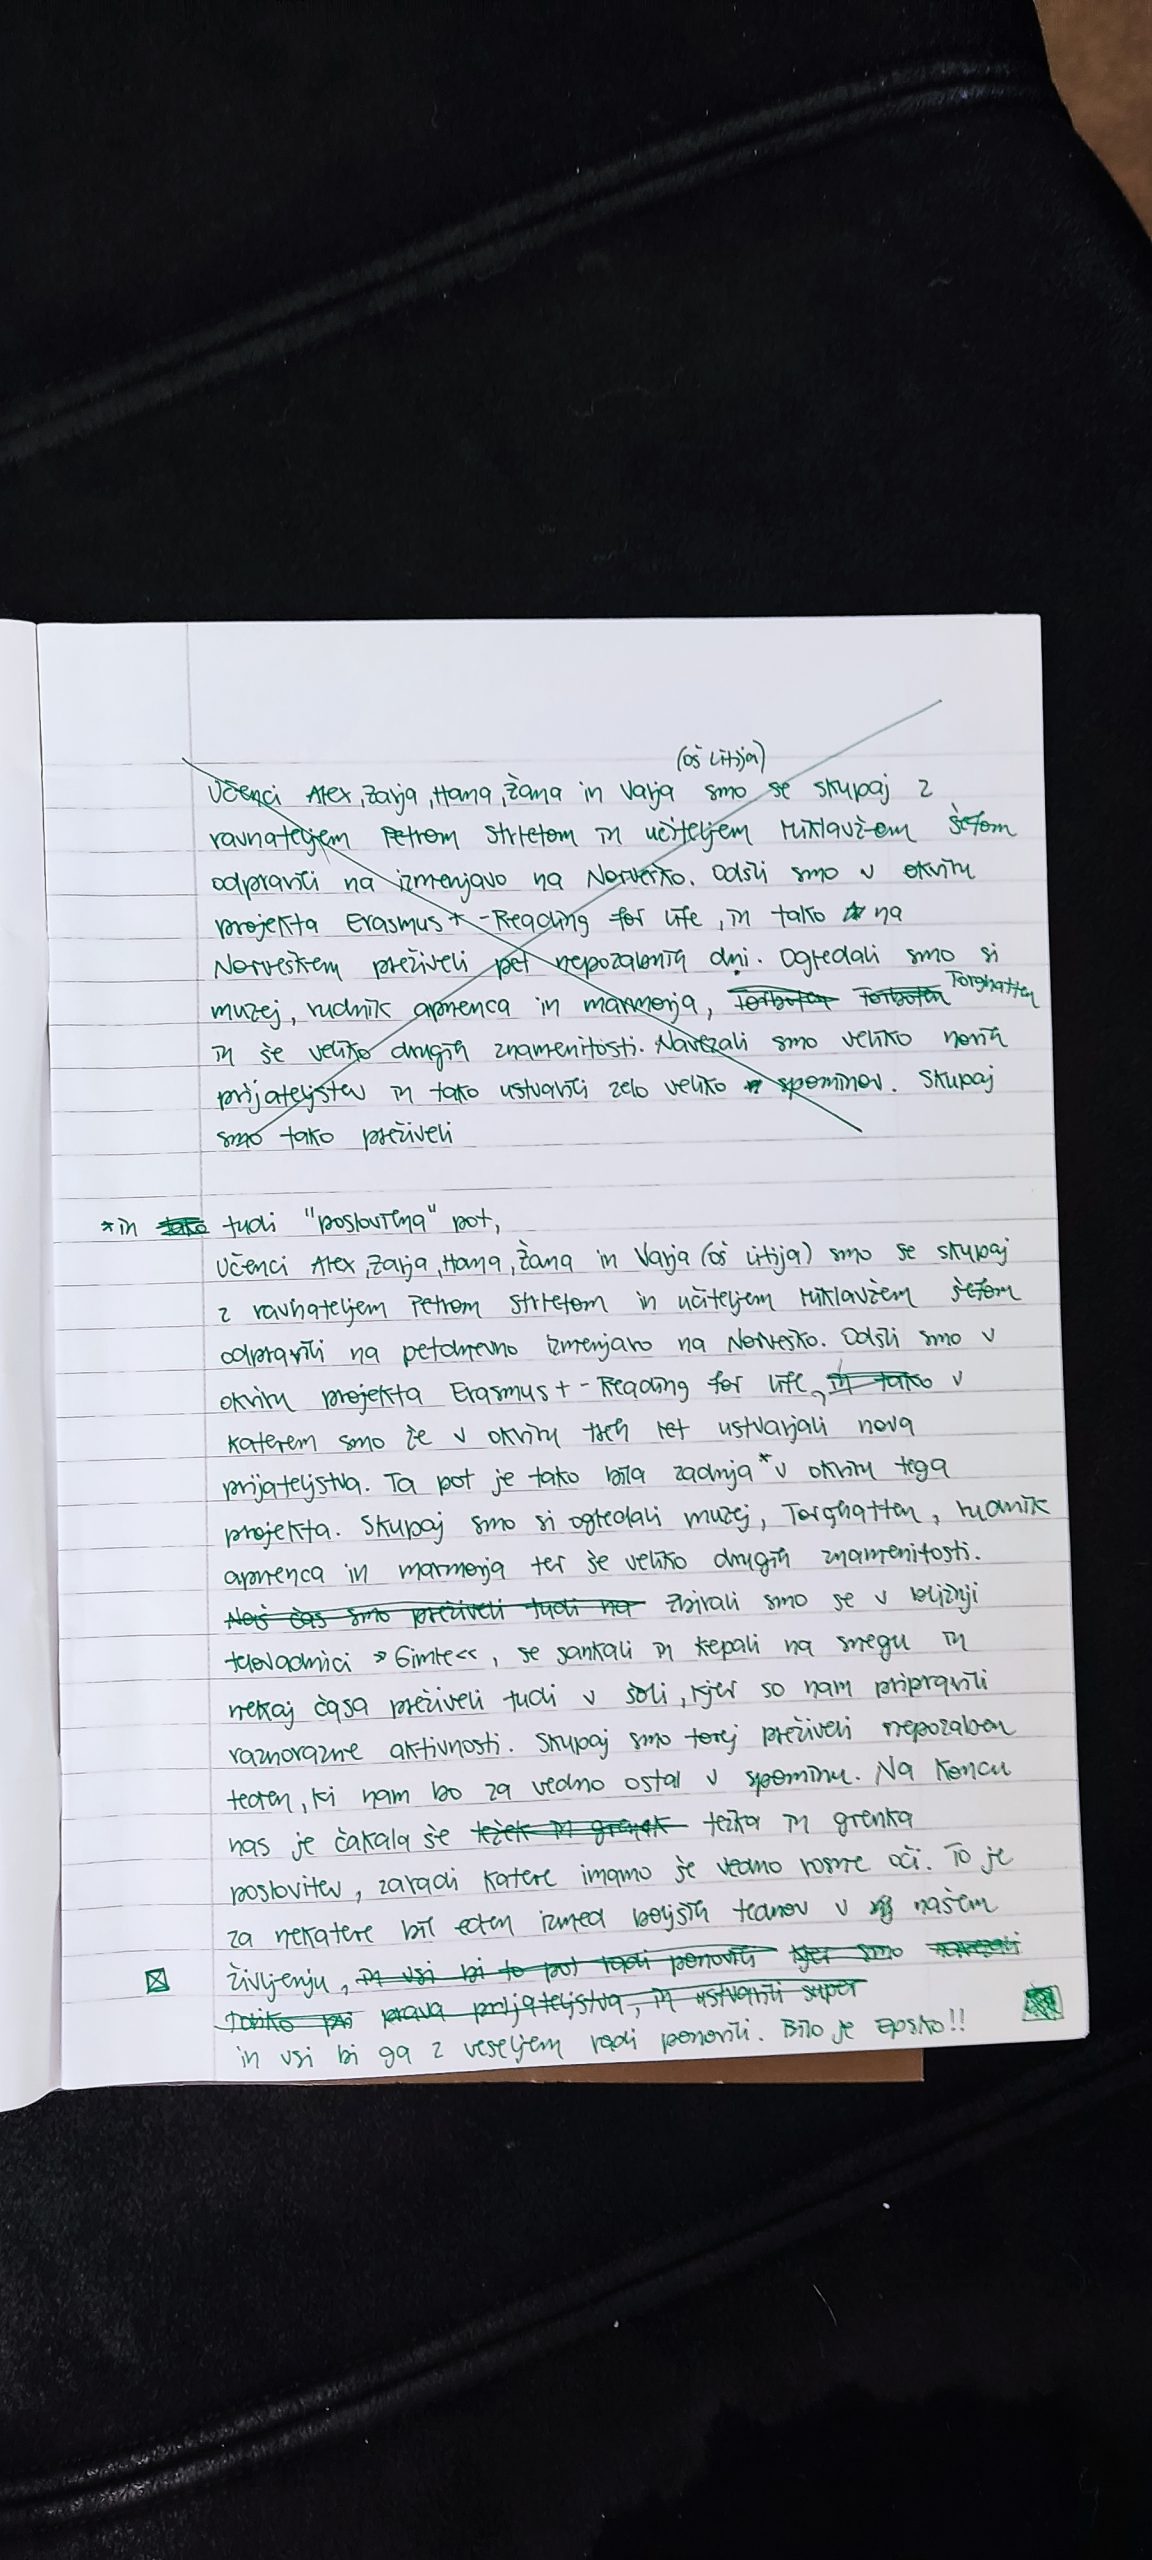 (OŠ Litija)
Učenci Alex, Zarja, Hana, Žana in Varja smo se skupaj z
ravnateljem Petrom Strletom in učiteljem Miklavžem Šefom
odpravili na izmenjavo na Norveško. Odšli smo v okviru
projekta Erasmus + - Reading for life, in tako na
Norveškem preživeli pet nepozabnih dni. Ogledali smo si
muzej, rudnik apnenca in marmorja, Torghatten
in še veliko drugih znamenitosti. Navezali smo veliko novih
prijateljstev in tako ustvarili zelo veliko spominov. Skupaj
smo tako preživeli
*in tako tudi "poslovilna" pot,
Učenci Alex, Zarja, Hana, Žana in Varja (OŠ Litija) smo se skupaj
z ravnateljem Petrom Strletom in učiteljem Miklavžem Šefom
odpravili na petdnevno izmenjavo na Norveško. Odšli smo v
okviru projekta Erasmus + - Reading for life, in tako v
katerem smo že v okviru treh let ustvarjali nova
prijateljstva. Ta pot je tako bila zadnja * v okviru tega
projekta. Skupaj smo si ogledali muzej, Torghatten, rudnik
apnenca in marmorja ter še veliko drugih znamenitosti.
Naš čas smo preživeli tudi na zbirali smo se v bližnji
telovadnici »Gimle<<, se sankali in kepali na snegu in
nekaj časa preživeli tudi v šoli, kjer so nam pripravili
raznorazne aktivnosti. Skupaj smo torej preživeli nepozaben
teden, ki nam bo za vedno ostal v spominu. Na koncu
nas je čakala še težek in grenak težka in grenka
poslovitev, zaradi katere imamo še vedno rosne oči. To je
za nekatere bil eden izmed boljših tednov v našem
življenju, in vsi bi to pot radi ponovili kjer smo navezali
toliko prava prijateljstva, in ustvarili super
in vsi bi ga z veseljem radi ponovili. Bilo je epsko!!